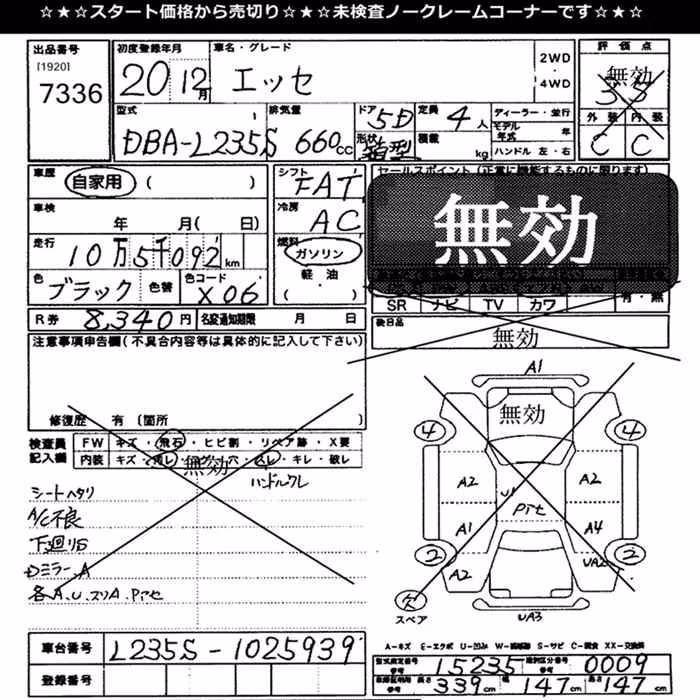 ☆★☆スタート価格から売切り☆★☆未検査ノークレームコーナーです☆★☆
出品番号
[1920]
7336
初度登録年月
20 12月
車名・グレード
エッセ
2WD
・
4WD
評価点
無効
外装 内装
C C
型式
DBA-L235S
排気量
660cc
ドア
5D
形状
箱型
定員
4人
積載
kg
ディーラー・並行
モデル年式 年
ハンドル 左・右
車歴
自家用 ( )
車検
年 月( 日)
走行
10万5千092km
色
ブラック 色替
色コード
X06
シフト
FAT
冷房
AC
燃料
ガソリン
軽・油
( )
セールスポイント(正常に機能するものに限ります)
無効
SR ナビ TV カワ
有・無
後日品
無効
R券 8,340円 名変通知期限 月 日
注意事項申告欄(不具合内容等は具体的に記入して下さい)
修復歴 有(箇所
検査員記入欄
FW キズ・飛石・ヒビ割・リペア跡・X要
内装 キズ・汚レ・コゲ穴・スレ・キレ・破レ
無効
ハンドルスレ
シートヘタリ
A/C不良
下廻りS
Dミラー.A
各A.U.スリA.Pアセ
車台番号 L235S-1025939
登録番号
A1
無効
4 4
A2 A2
U1
Pアセ
A1 A4
2 2
A2 UA2
欠
スペア
UA3
A-キズ E-エクボ U-凹み W-補修跡 S-サビ C-腐食 XX-交換済
型式指定番号 参考 15235 類別区分番号 参考 0009
車検証明用 参考 長さ 339cm 幅 147cm 高さ 147cm